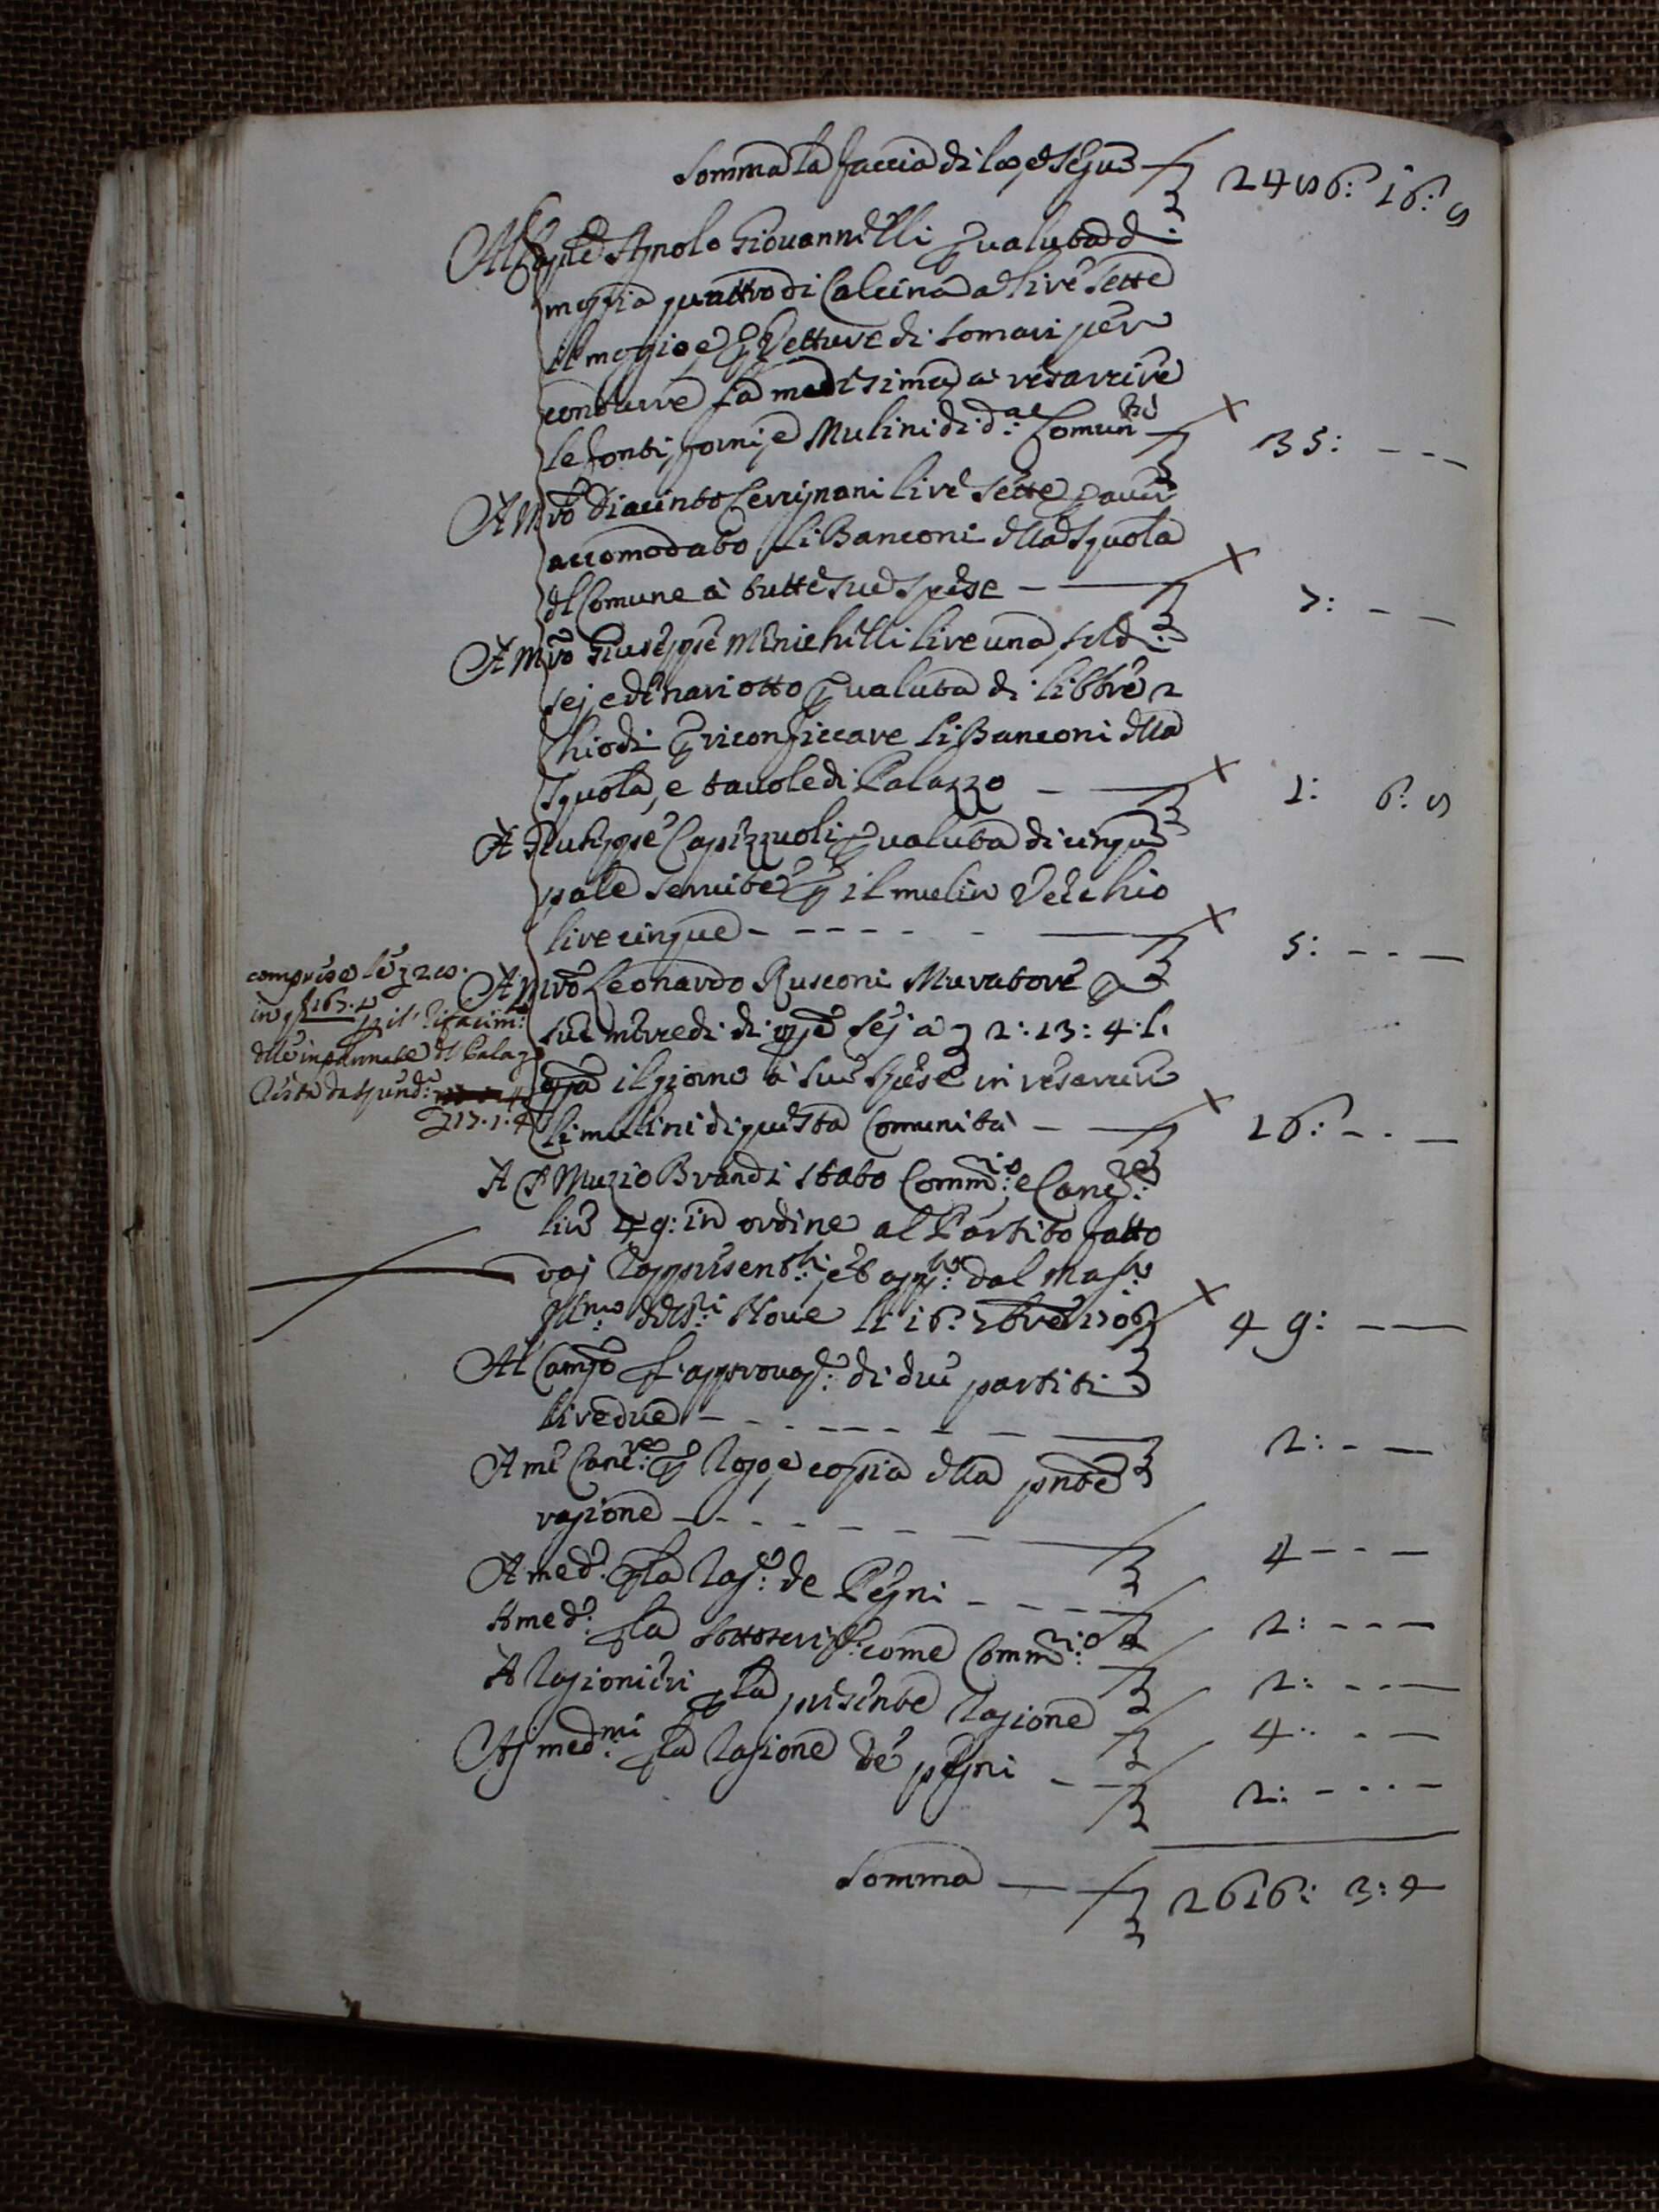 Somma la faccia di là, e segue £ 2486: 16: 8
Al Cap.le Agnolo Giovannelli p valuta di
moggia quattro di Calcina a lire sette
il moggio e p Vetture di somari per
condurre la medesima a resarcire
le fonti, forni, e Mulini di d.a Comun.tà £ 35: - - -
A Mro Diacinto Cerrignani lire sette p aver
accomodato li Banconi della Squola
del Comune à tutte sue spese — £ 7: - -
A Mro Giuseppe Minichelli lire una, soldi
sej, e denari otto p valuta di libbre 2
Chiodi p riconficcare li Banconi della
Squola, e tavole di Palazzo — £ 1: 6: 8
A Giuseppe Capizzuoli p valuta di cinque
pale servite p il mulin Vecchio
lire cinque - - - - - £ 5: - - -
A Mro Leonardo Rusconi Muratore p
sue mercedi di opre sej a £ 2: 13: 4 l.
opra il giorno à sue spese in resarcire
li mulini di questa Comunità — £ 16: - . -
comprese le £ 20.
in £ 167.4 p il rifacim.o
delle impannate del Palaz.o
Resta da spend.e
£ 17.1.4
A S Muzio Brandi stato Comm.rio e Canc.re
lire 49: in ordine al Partito fatto
daj Rappresent.ti, et app.to dal Mag.to
Ill.mo de SS.ri Nove li 16: 7bre 1706 £ 49: — —
Al Campo p l'approvaz.e di due partiti
lire due - - - - - - £ 2: - —
A me Canc.re p rogo, e copia della pnte
ragione - - - - - - £ 4 - - -
A med.o p la rag.e de Pegni - - - - £ 2: - - -
A med.o p la sottoscriz.e come Comm.rio £ 2: - - -
A Ragionieri p la presente ragione £ 4: - -
Aj med.mi p la ragione de pegni - - £ 2: - - - -
Somma — £ 2616: 3: 4